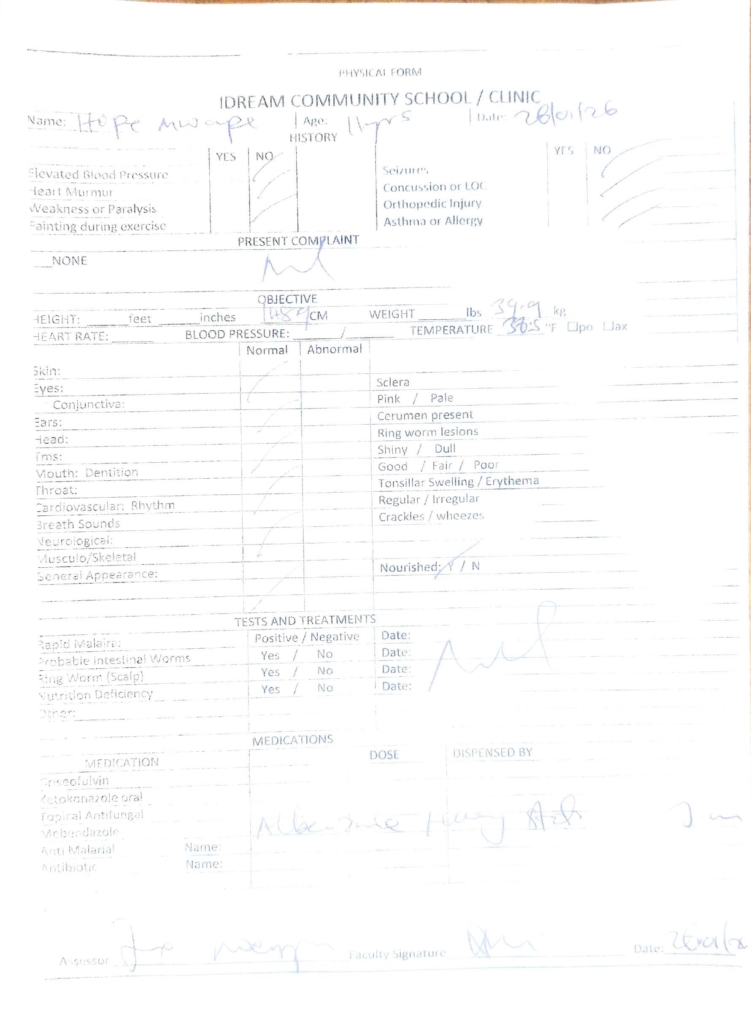 PHYSICAL FORM
IDREAM COMMUNITY SCHOOL / CLINIC
Name: Hope Mwape Age: 11yrs Date: 28/01/26
HISTORY
YES NO YES NO
Elevated Blood Pressure Seizures
Heart Murmur Concussion or LOC
Weakness or Paralysis Orthopedic Injury
Fainting during exercise Asthma or Allergy
PRESENT COMPLAINT
NONE Nil
OBJECTIVE
HEIGHT: feet inches CM WEIGHT lbs 39.9 kg
HEART RATE: BLOOD PRESSURE: / TEMPERATURE 36.5 °F po ax
Normal Abnormal
Skin:
Eyes: Sclera
Conjunctiva: Pink / Pale
Ears: Cerumen present
Head: Ring worm lesions
Tms: Shiny / Dull
Mouth: Dentition Good / Fair / Poor
Throat: Tonsillar Swelling / Erythema
Cardiovascular: Rhythm Regular / Irregular
Breath Sounds Crackles / wheezes
Neurological:
Musculo/Skeletal
General Appearance: Nourished: Y / N
TESTS AND TREATMENTS
Rapid Malaira: Positive / Negative Date:
Probable Intestinal Worms Yes / No Date: Nil
Ring Worm (Scalp) Yes / No Date:
Nutrition Deficiency Yes / No Date:
Other:
MEDICATIONS
MEDICATION DOSE DISPENSED BY
Griseofulvin
Ketokonazole oral
Topiral Antifungal
Mebendazole
Anti Malarial Name:
Antibiotic Name:
Assessor Faculty Signature Date: